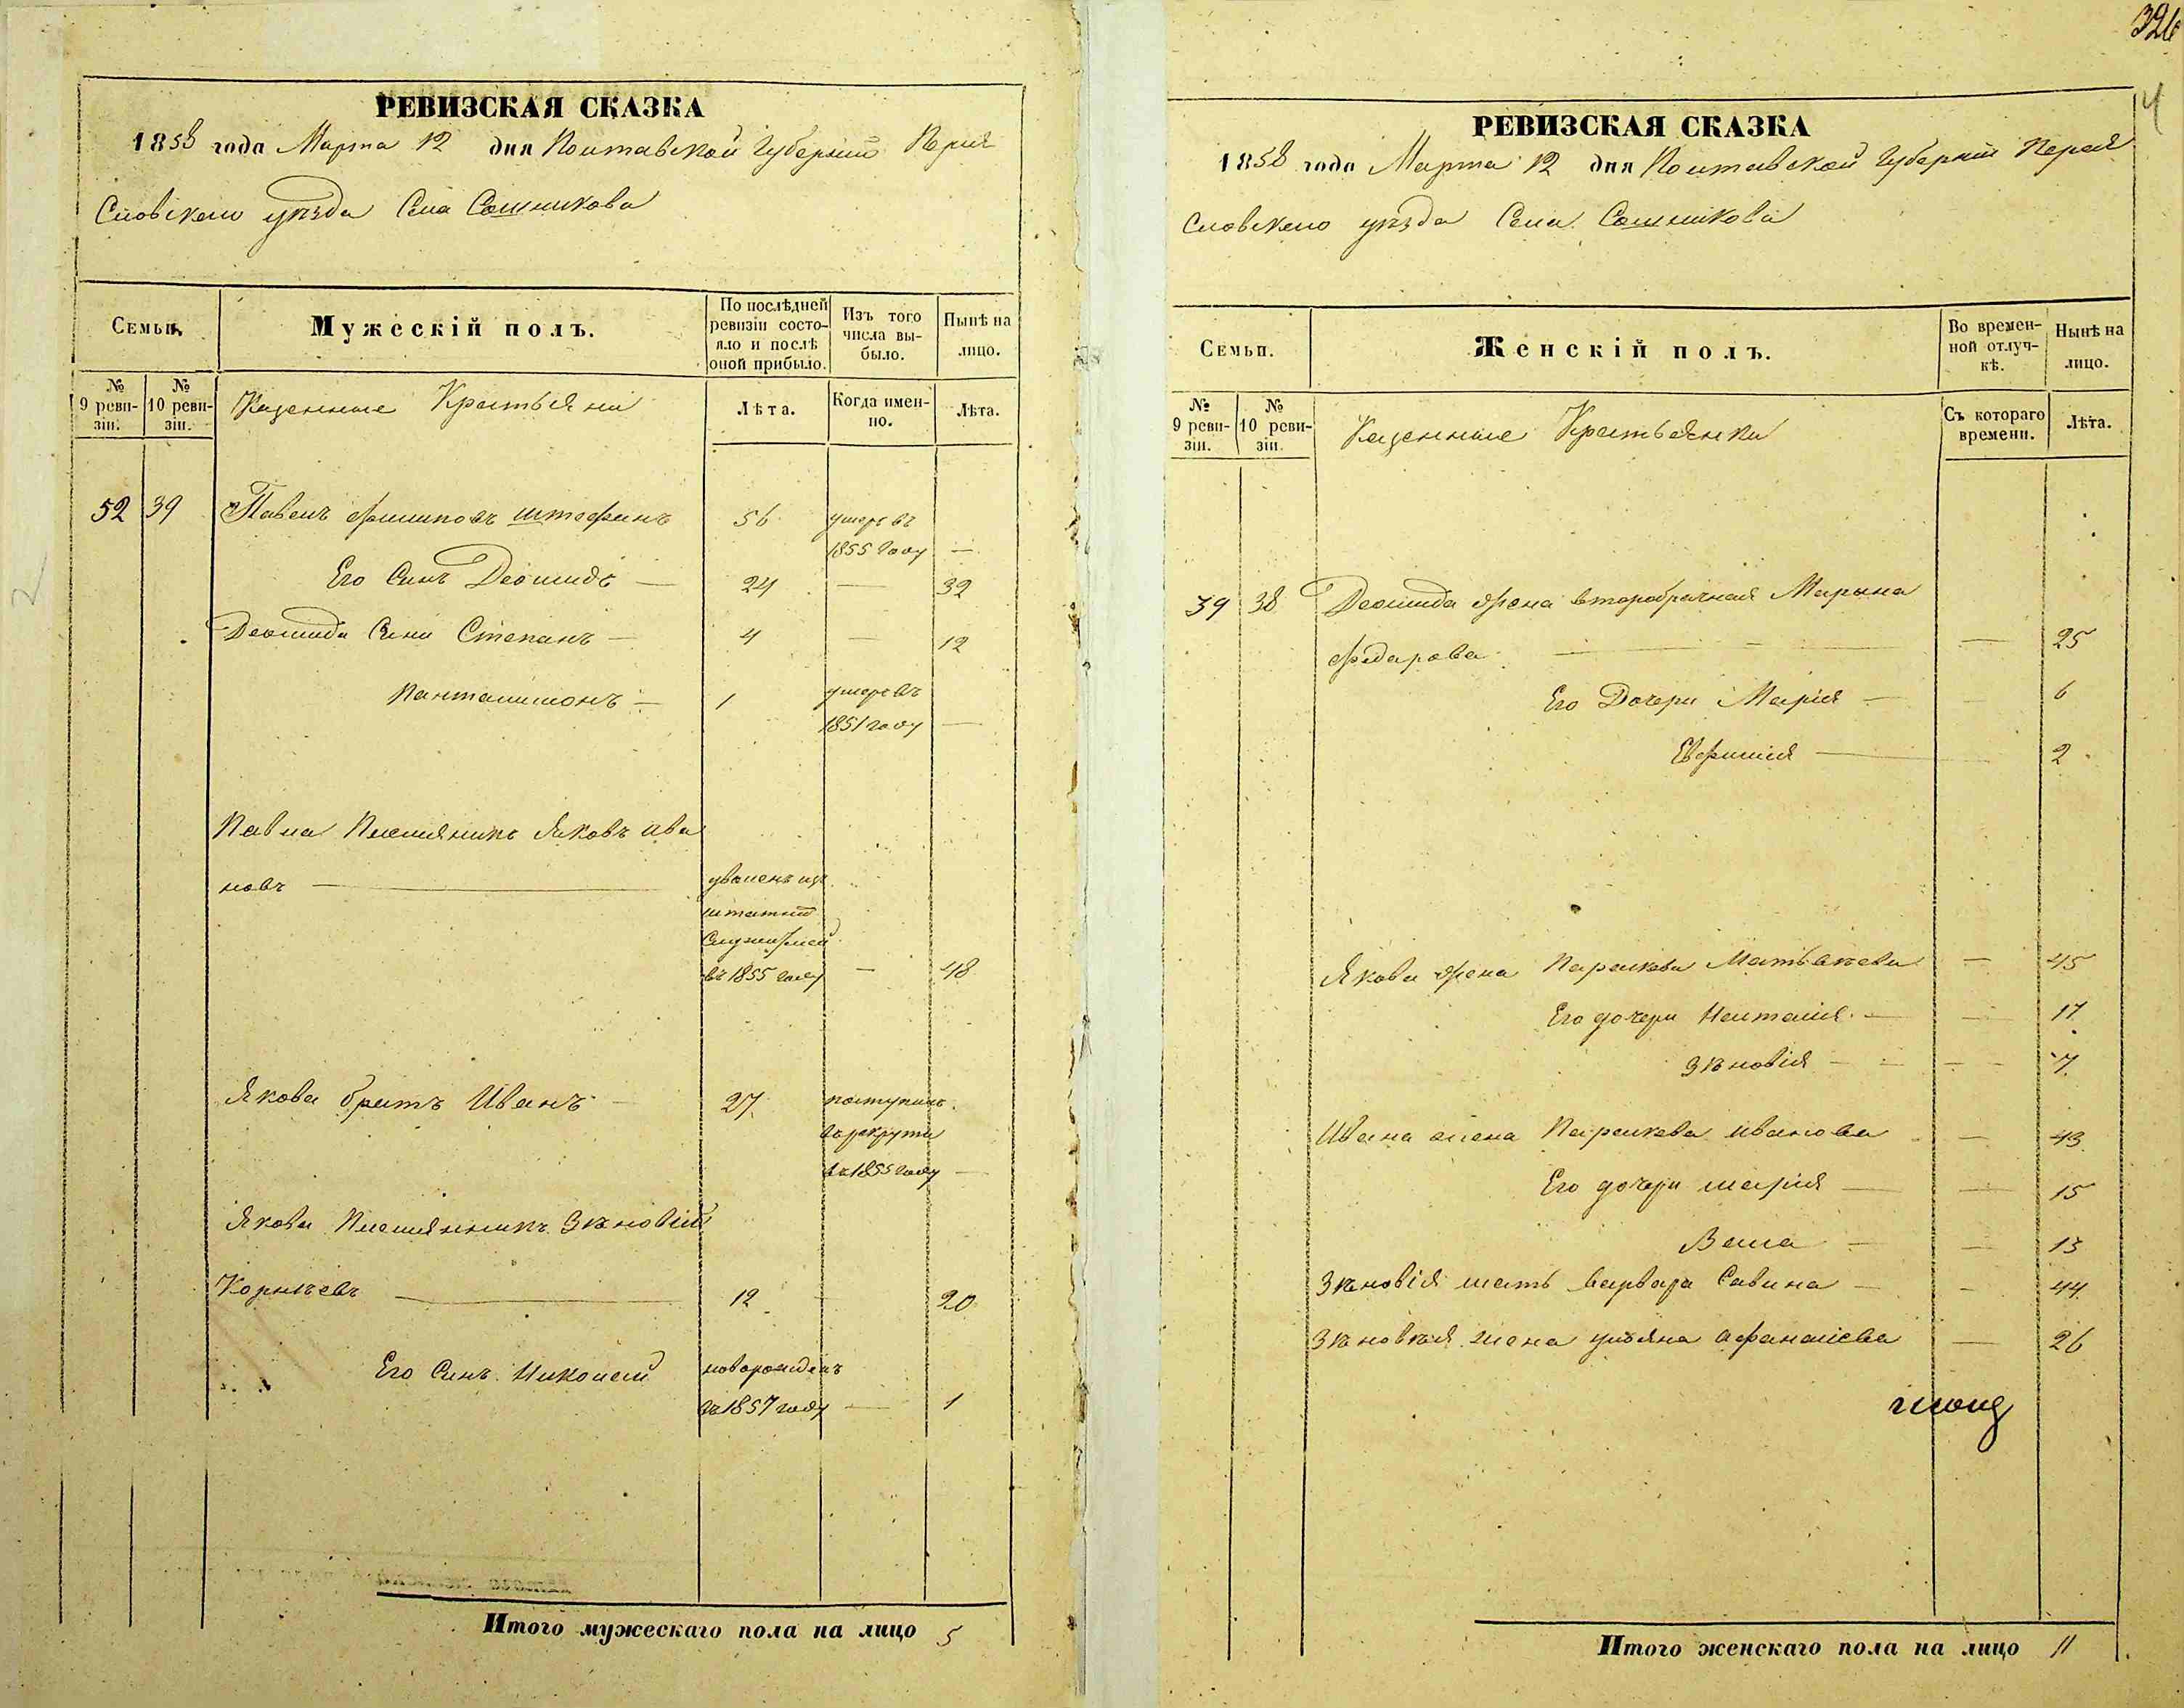 326
4
РЕВИЗСКАЯ СКАЗКА
1858 года Марта 12 дня Полтавской Губерніи Перея
Словскаго уѣзда Села Сошникова
Семьи.
Мужескій полъ.
По послѣдней ревизіи состояло и послѣ оной прибыло.
Изъ того числа выбыло.
Нынѣ на лицо.
№ 9 ревизіи.
№ 10 ревизіи.
Казенные Крестьяни
Лѣта.
Когда именно.
Лѣта.
52 39 Павелъ Филиповъ Штефанъ 56 умеръ въ
1855 году —
Его Синъ Деомидъ — 24 — 32
Деомида Сини Степанъ — 4 — 12
Панталимонъ — 1 умеръ въ
1851 году —
Павла Племяникъ Яковъ Ива
новъ — уволенъ изъ
штатной
Служителей
въ 1855 году — 48
Якова братъ Иванъ — 27 поступилъ
въ рекруты
въ 1855 году —
Якова Племянникъ Зѣновій
Корнѣевъ — 12 — 20
Его Синъ Николай новорожденъ
въ 1857 году — 1
Итого мужескаго пола на лицо 5
РЕВИЗСКАЯ СКАЗКА
1858 года Марта 12 дня Полтавской Губерніи Перея
Словскаго уѣзда Села Сошникова
Семьи.
Женскій полъ.
Во временной отлучкѣ.
Нынѣ на лицо.
№ 9 ревизіи.
№ 10 ревизіи.
Казенные Крестьянки
Съ котораго времени.
Лѣта.
39 38 Деомида жена второбрачная Марына
Федарова — — 25
Его Дочери Марія — — 6
Евфимія — — 2
Якова жена Параскева Матвѣева — 45
Его дочери Наталія — — 17
Зѣновія — — 7
Ивана жена Параскева Иванова — 43
Его дочери Марія — — 15
Васса — — 13
Зѣновія мать Варвара Савина — — 44
Зѣновѣя жена Ульяна Афанасіева — 26
Итого женскаго пола на лицо 11